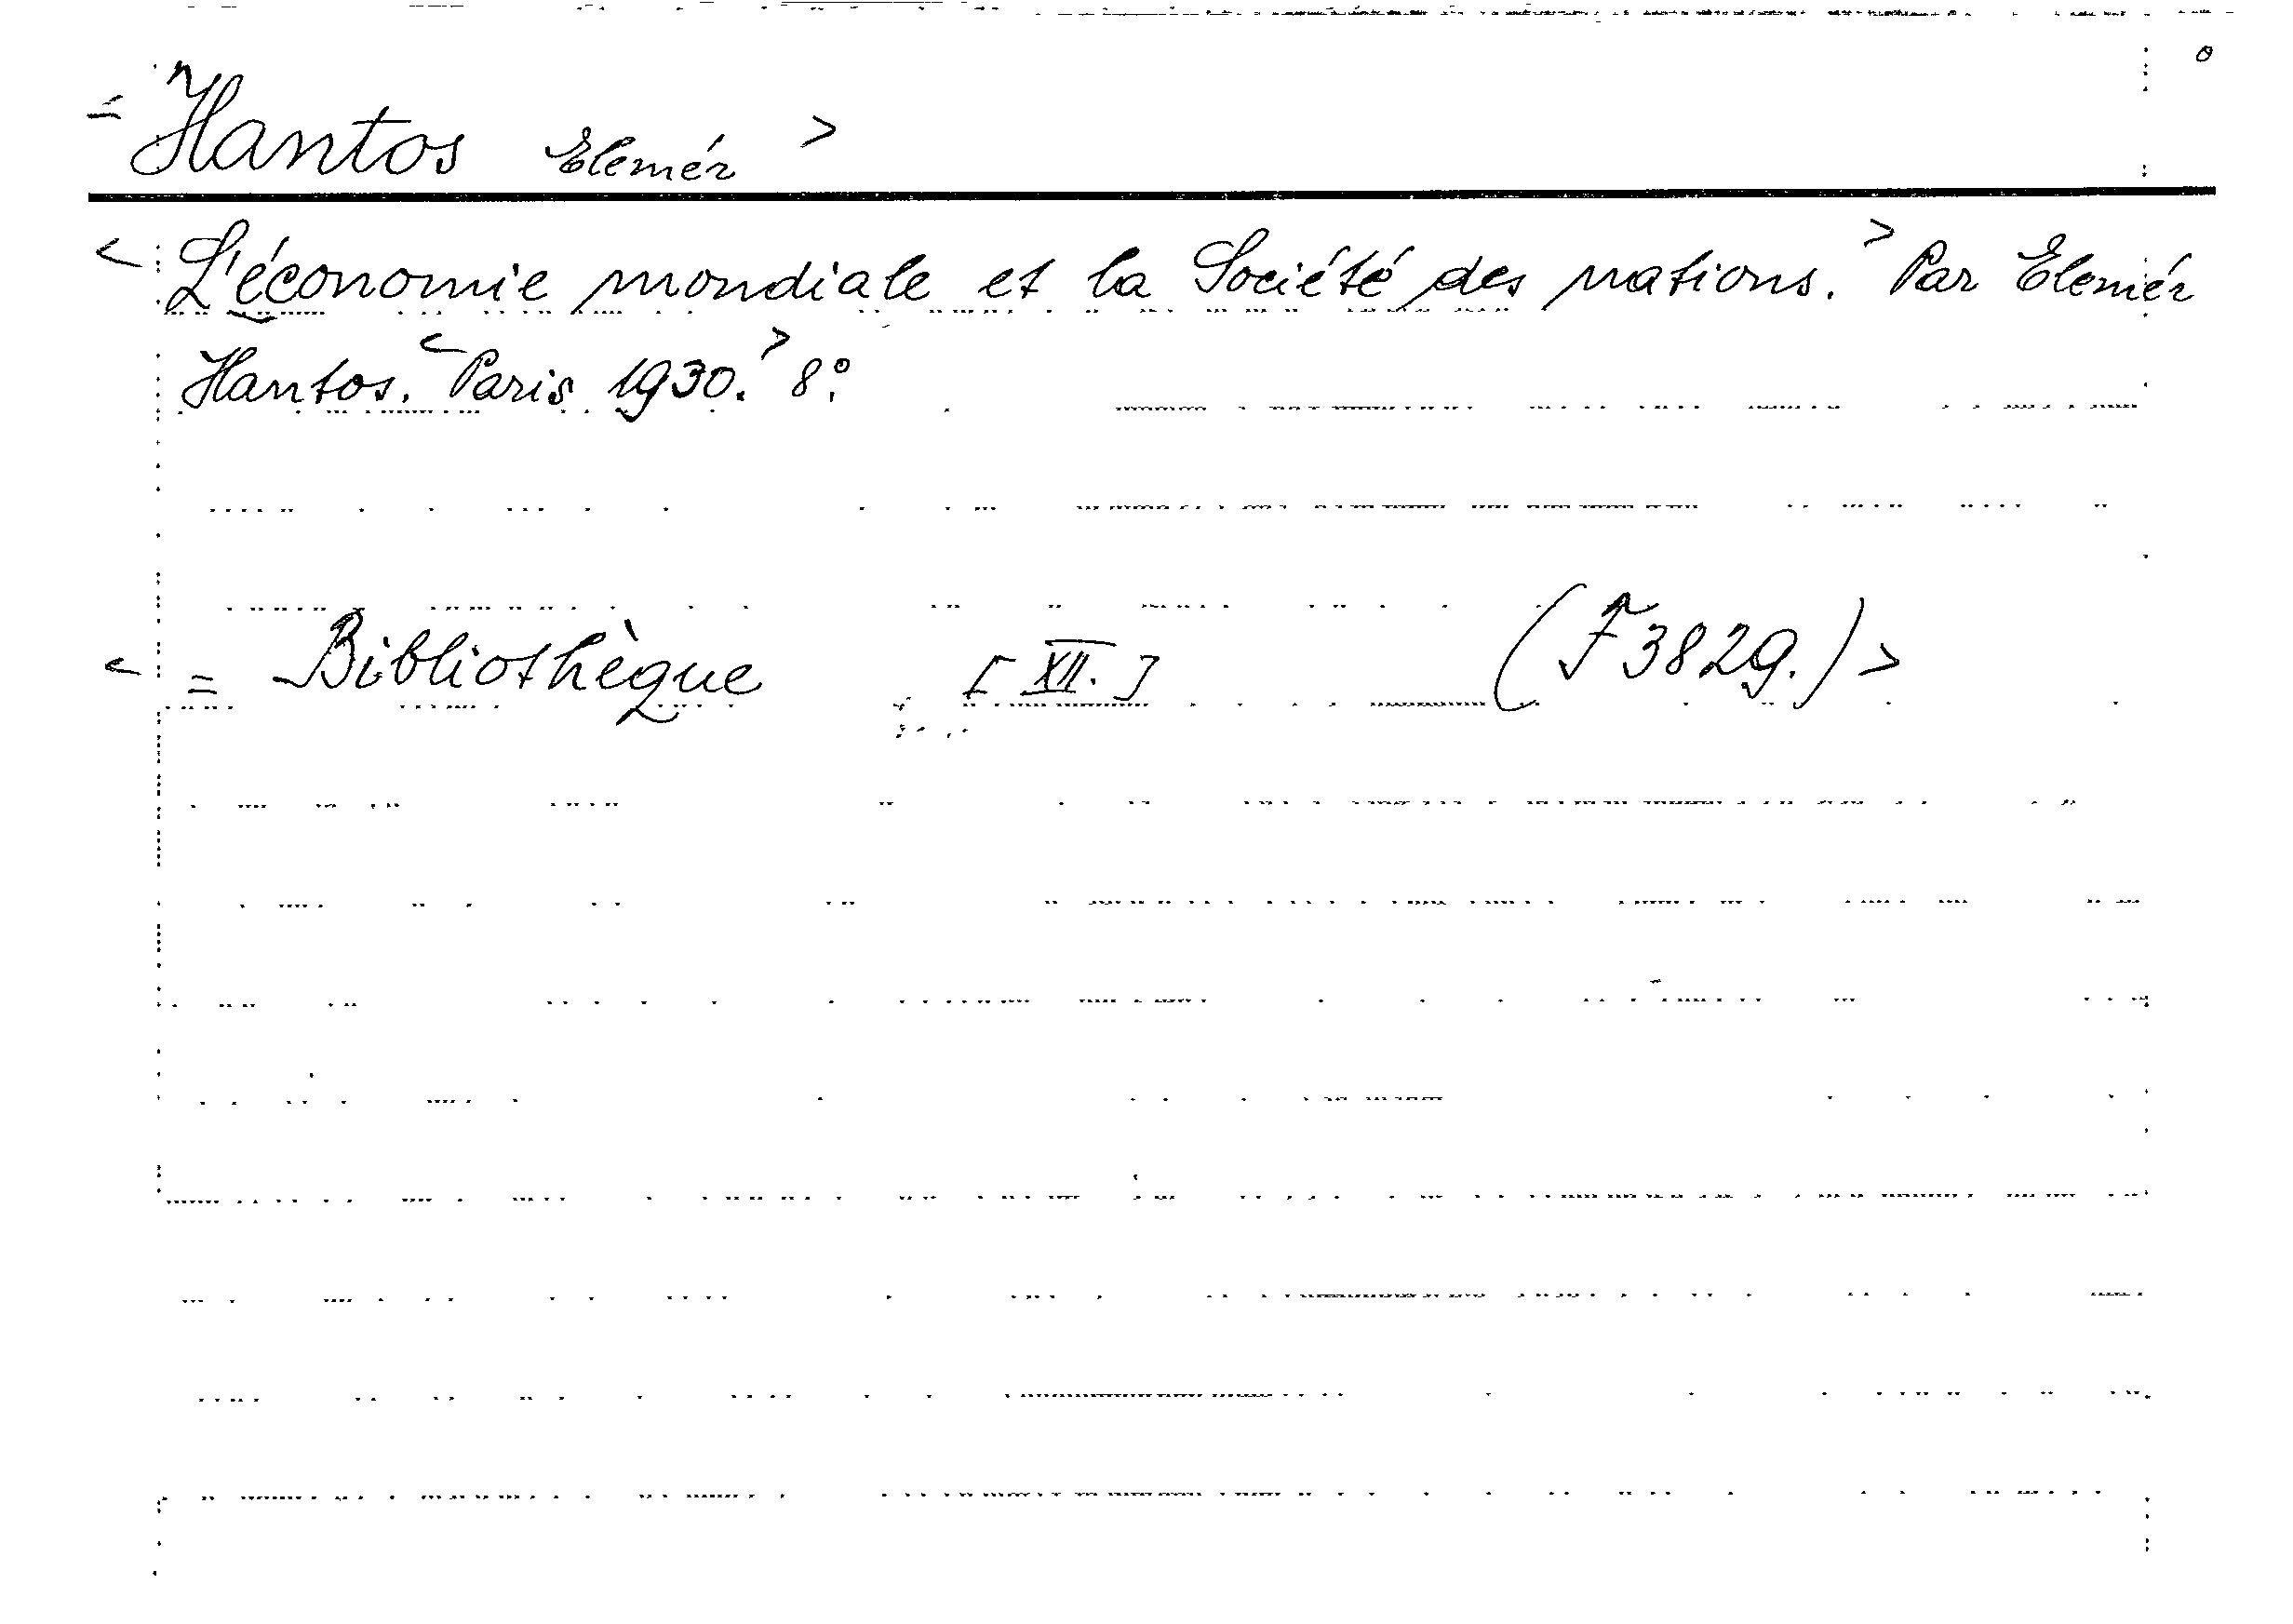 = Hantos Elemér >
< L'économie mondiale et la Société des nations. > Par Elemér
Hantos. < Paris 1930. > 8°.
< = Bibliothèque [XII.] (F3829.) >